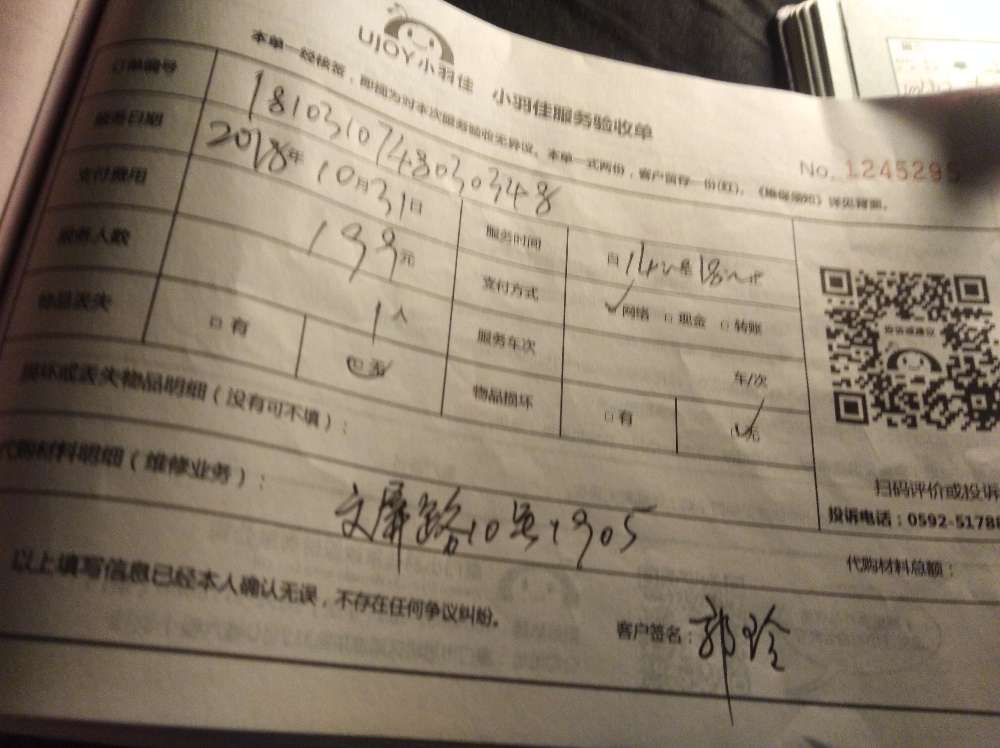 UJOY小羽佳 小羽佳服务验收单
本单一经核签，即视为对本次服务验收无异议。本单一式两份，客户留存一份(红)，《维保须知》详见背面。
No. 1245295
订单编号 1810310748030348
服务日期 2018年10月31日 服务时间 自14 至18
支付费用 199元 支付方式 网络 现金 转账
服务人数 1人 服务车次 车/次
物品丢失 有 无 物品损坏 有 无
损坏或丢失物品明细（没有可不填）：
扫码评价或投诉
代购材料明细（维修业务）：
投诉电话：0592-51788
文屏路10号1905
代购材料总额：
以上填写信息已经本人确认无误，不存在任何争议纠纷。
客户签名：郭玲